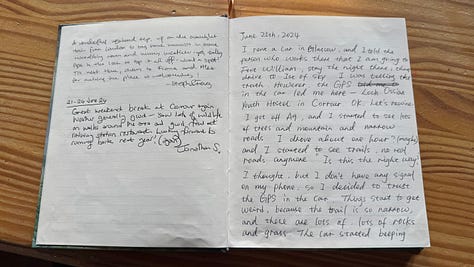 A wonderful weekend
from London to
wonderful
Loch
for making the place so welcoming.
21-24 June 24
Great weekend break at Corrour again,
Weather generally good - Saw lots of wildlife
on walks around the area and good food at
railway station restaurant. Looking forward to
coming back next year. (again)
Jonathan S.
June 28th, 2024
I rent a car in Glascow, and I told the
person who works there that I am going to
Fort William, stay the night there, then
drive to Isle of Sky. I was telling the
truth. However, the GPS
in the car led me here - Loch Ossian
Youth Hostel in Corrour. OK. Let's rewind.
I got off A9, and I started to see lots
of trees and mountains and narrow
roads. I drove about one hour? (maybe)
and I started to see trails, no real
roads anymore. Is this the right way?
I thought. but I don't have any signal
on my phone. so I decided to trust
the GPS in the car. Things start to get
weird, because the trail is so narrow,
and there are lots of.. lots of rocks
and grass. The car started beeping